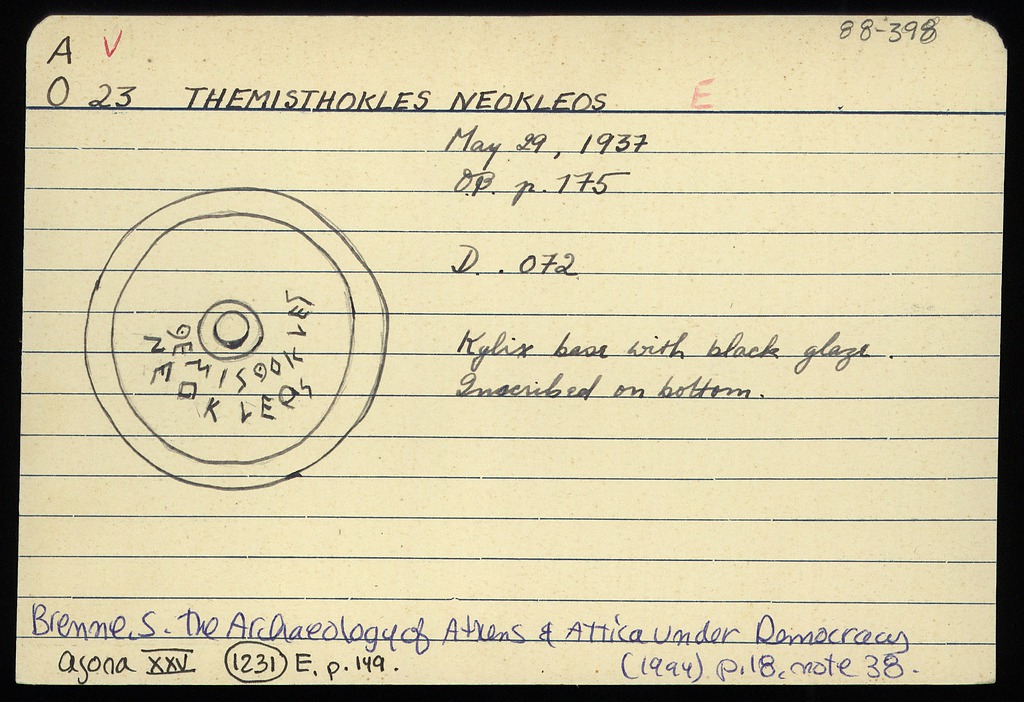 A V 88-398
O 23 THEMISTHOKLES NEOKLEOS E
May 29, 1937
OB. p. 175
D. .072
Kylix base with black glaze.
Inscribed on bottom.
NEOKLEOS
Brenne, S. The Archaeology of Athens & Attica under Democracy
Agora XXV (1231) E, p. 149. (1994) p.18, note 38.